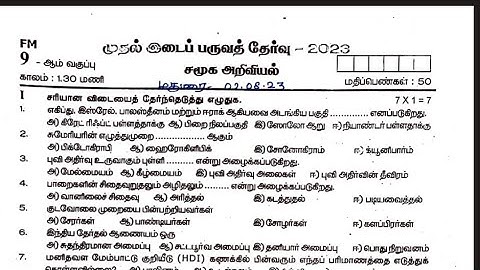 FM முதல் இடைப் பருவத் தேர்வு - 2023
9 - ஆம் வகுப்பு சமூக அறிவியல்
காலம் : 1.30 மணி மதுரை - 02.08.23 மதிப்பெண்கள் : 50
I சரியான விடையைத் தேர்ந்தெடுத்து எழுதுக. 7 X 1 = 7
1. எகிப்து, இஸ்ரேல், பாலஸ்தீனம் மற்றும் ஈராக் ஆகியவை அடங்கிய பகுதி ................ எனப்படுகிறது.
அ) கிரேட் ரிஃப்ட் பள்ளத்தாக்கு ஆ) பிறை நிலப்பகுதி இ) ஸோலோ ஆறு ஈ) நியாண்டர் பள்ளதாக்கு
2. சுமேரியரின் எழுத்துமுறை ................ ஆகும்
அ) பிக்டோகிராபி ஆ) ஹைரோகிளிபிக் இ) சோனோகிராம் ஈ) க்யூனிபார்ம்
3. புவி அதிர்வு உருவாகும் புள்ளி ................ என்று அழைக்கப்படுகிறது.
அ) மேல்மையம் ஆ) கீழ்மையம் இ) புவி அதிர்வு அலைகள் ஈ) புவி அதிர்வின் தீவிரம்
4. பாறைகளின் சிதைவுறுதலும் அழிதலும் ......... என்று அழைக்கப்படுகிறது.
அ) வானிலைச் சிதைவு ஆ) அரித்தல் இ) கடத்துதல் ஈ) படியவைத்தல்
5. குடவோலை முறையை பின்பற்றியவர்கள்
அ) சேரர்கள் ஆ) பாண்டியர்கள் இ) சோழர்கள் ஈ) களப்பிரர்கள்
6. இந்திய தேர்தல் ஆணையம் ஒரு
அ) சுதந்திரமான அமைப்பு ஆ) சட்டபூர்வ அமைப்பு இ) தனியார் அமைப்பு ஈ) பொது நிறுவனம்
7. மனிதவள மேம்பாட்டு குறியீடு (HDI) கணக்கில் பின்வரும் எந்தப் பரிமாணத்தை எடுத்துக்